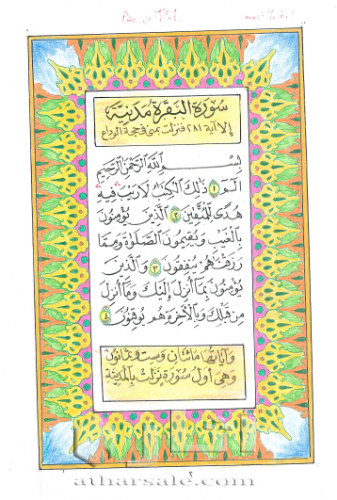 سورة البقرة مدنية
إلا آية ٢٨١ فنزلت بمنى في حجة الوداع
بسم الله الرحمن الرحيم
الم ١ ذلك الكتاب لا ريب فيه
هدى للمتقين ٢ الذين يؤمنون
بالغيب ويقيمون الصلوة ومما
رزقناهم ينفقون ٣ والذين
يؤمنون بما أنزل إليك وما أنزل
من قبلك وبالآخرة هم يوقنون ٤
وآياتها مائتان وست وثمانون
وهي أول سورة نزلت بالمدينة
٢
atharsale.com